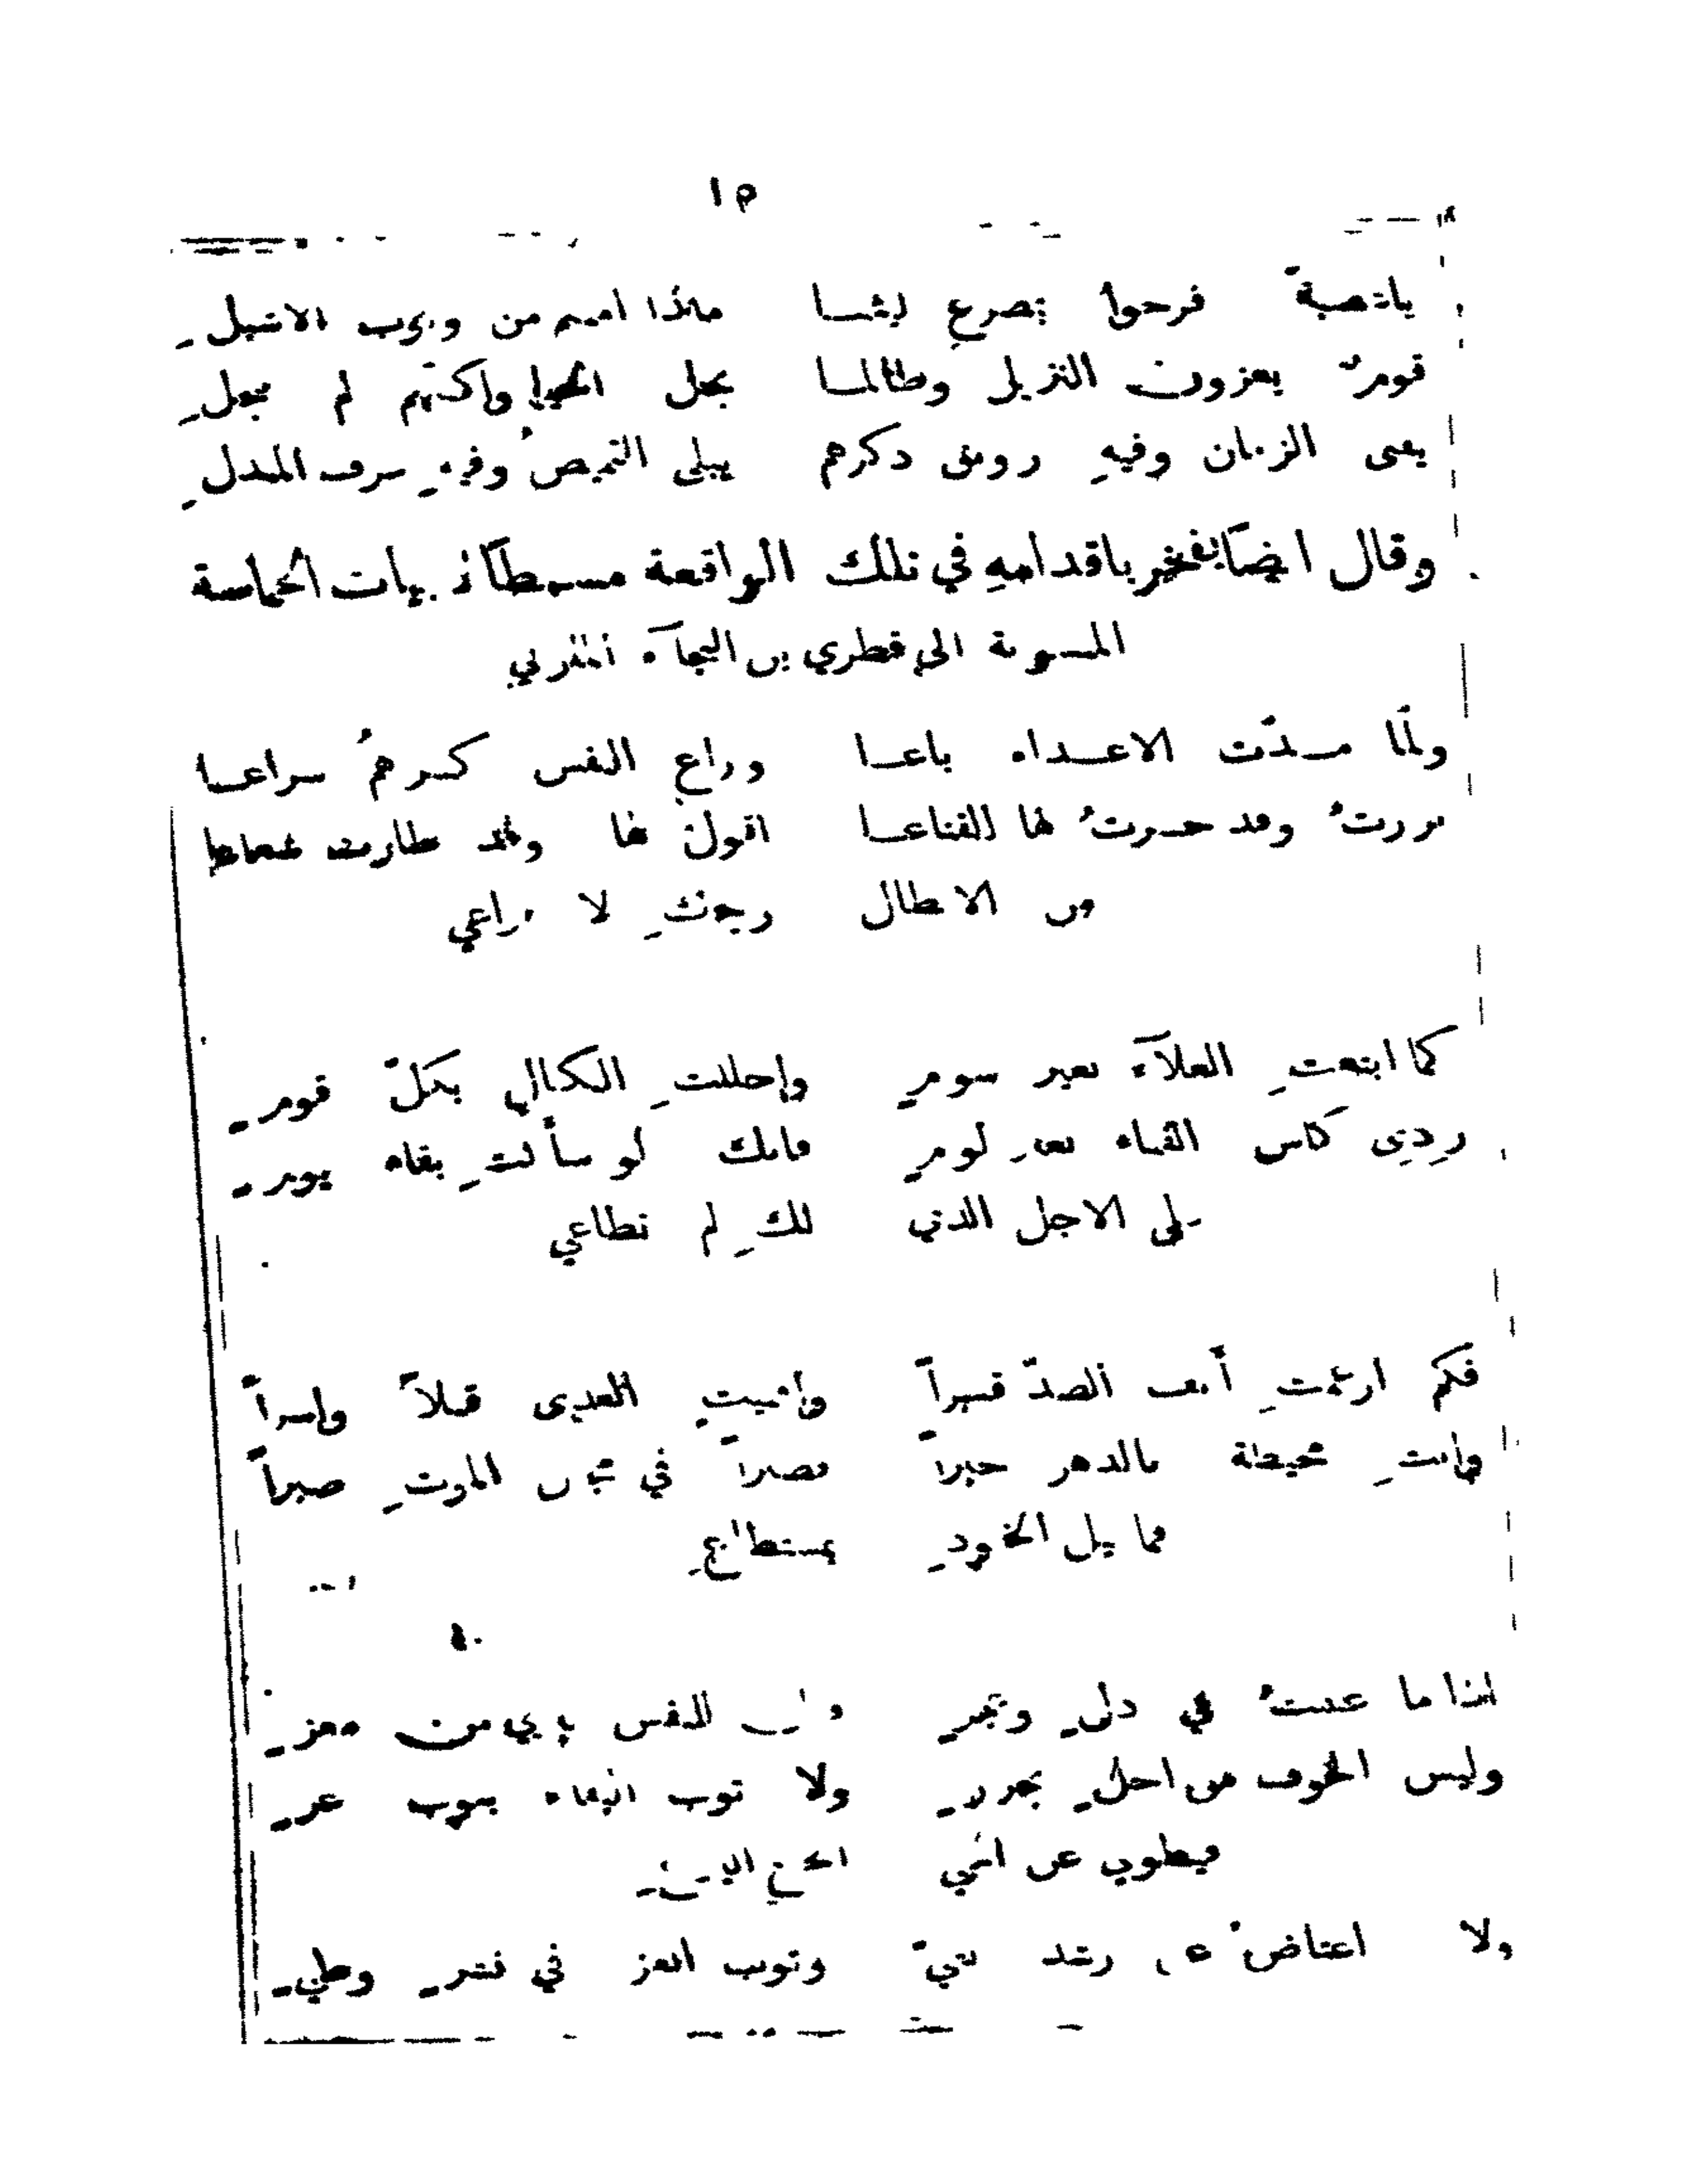 ١٥
يا عصبة فرحوا بمصرع ليثنا ماذا امنتم من وثوب الاشبل
قوم يعزون النزيل وطالما بخل الحيا واكفهم لم تبخل
يفنى الزمان وفيهِ رونق ذكرهم يبلى القميص وفيهِ عرف المندل
وقال ايضًا يفخر باقدامهِ في تلك الواقعة مسمطًا ابيات الحماسة
المنسوبة الى قطري بن الفجآة
ولمّا مدّت الاعداء باعا وراع النفس كرهمُ سراعا
برزتُ وقد حسرتُ لها القناعا اقول لها وقد طارت شعاعا
من الابطال ويحكِ لا تراعي
كما ابتعتِ العلاء بغير سومِ واحللتِ النكال بكلّ قومِ
رِدِي كاس الفناء بغير لومِ فانك لو سألتِ بقاء يومِ
على الاجل الذي لكِ لم تطاعي
فكم ارغمتِ أنف الضدّ قسراً وافنيتِ العدى قتلاً واسراً
وانتِ محيطة بالدهر خبراً فصبراً في مجال الموتِ صبراً
فما نيل الخلودِ بمستطاعِ
اذا ما عشتُ في ذلٍ وعجزٍ للنفس من معزِ
وليس الخوف من اجلٍ بحرزِ ولا ثوب البقاء بثوب عزِ
فيطوى عن اخي الخنع اليراعِ
ولا اعتاض عن رشد بغيّ وثوب العز في نشرٍ وطيِ